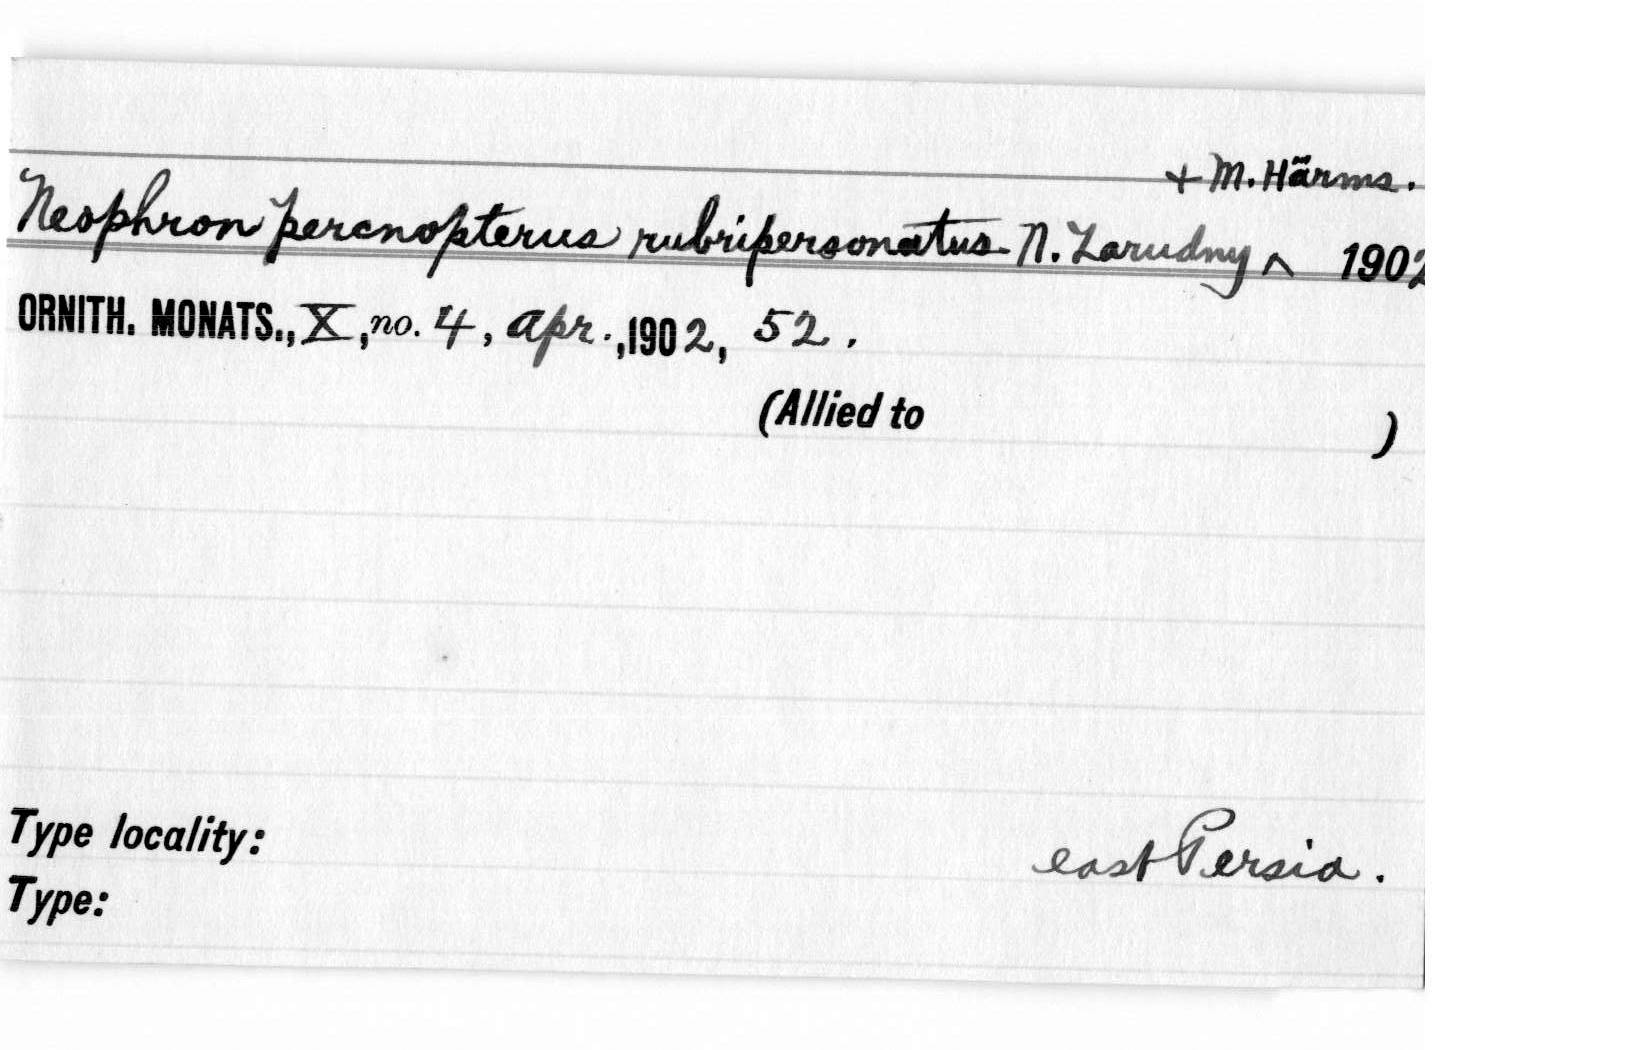 + M. Härms.
Neophron percnopterus rubripersonatus N. Zarudny ^ 1902
ORNITH. MONATS., X, no. 4, Apr., 1902, 52.
(Allied to )
Type locality: east Persia.
Type: